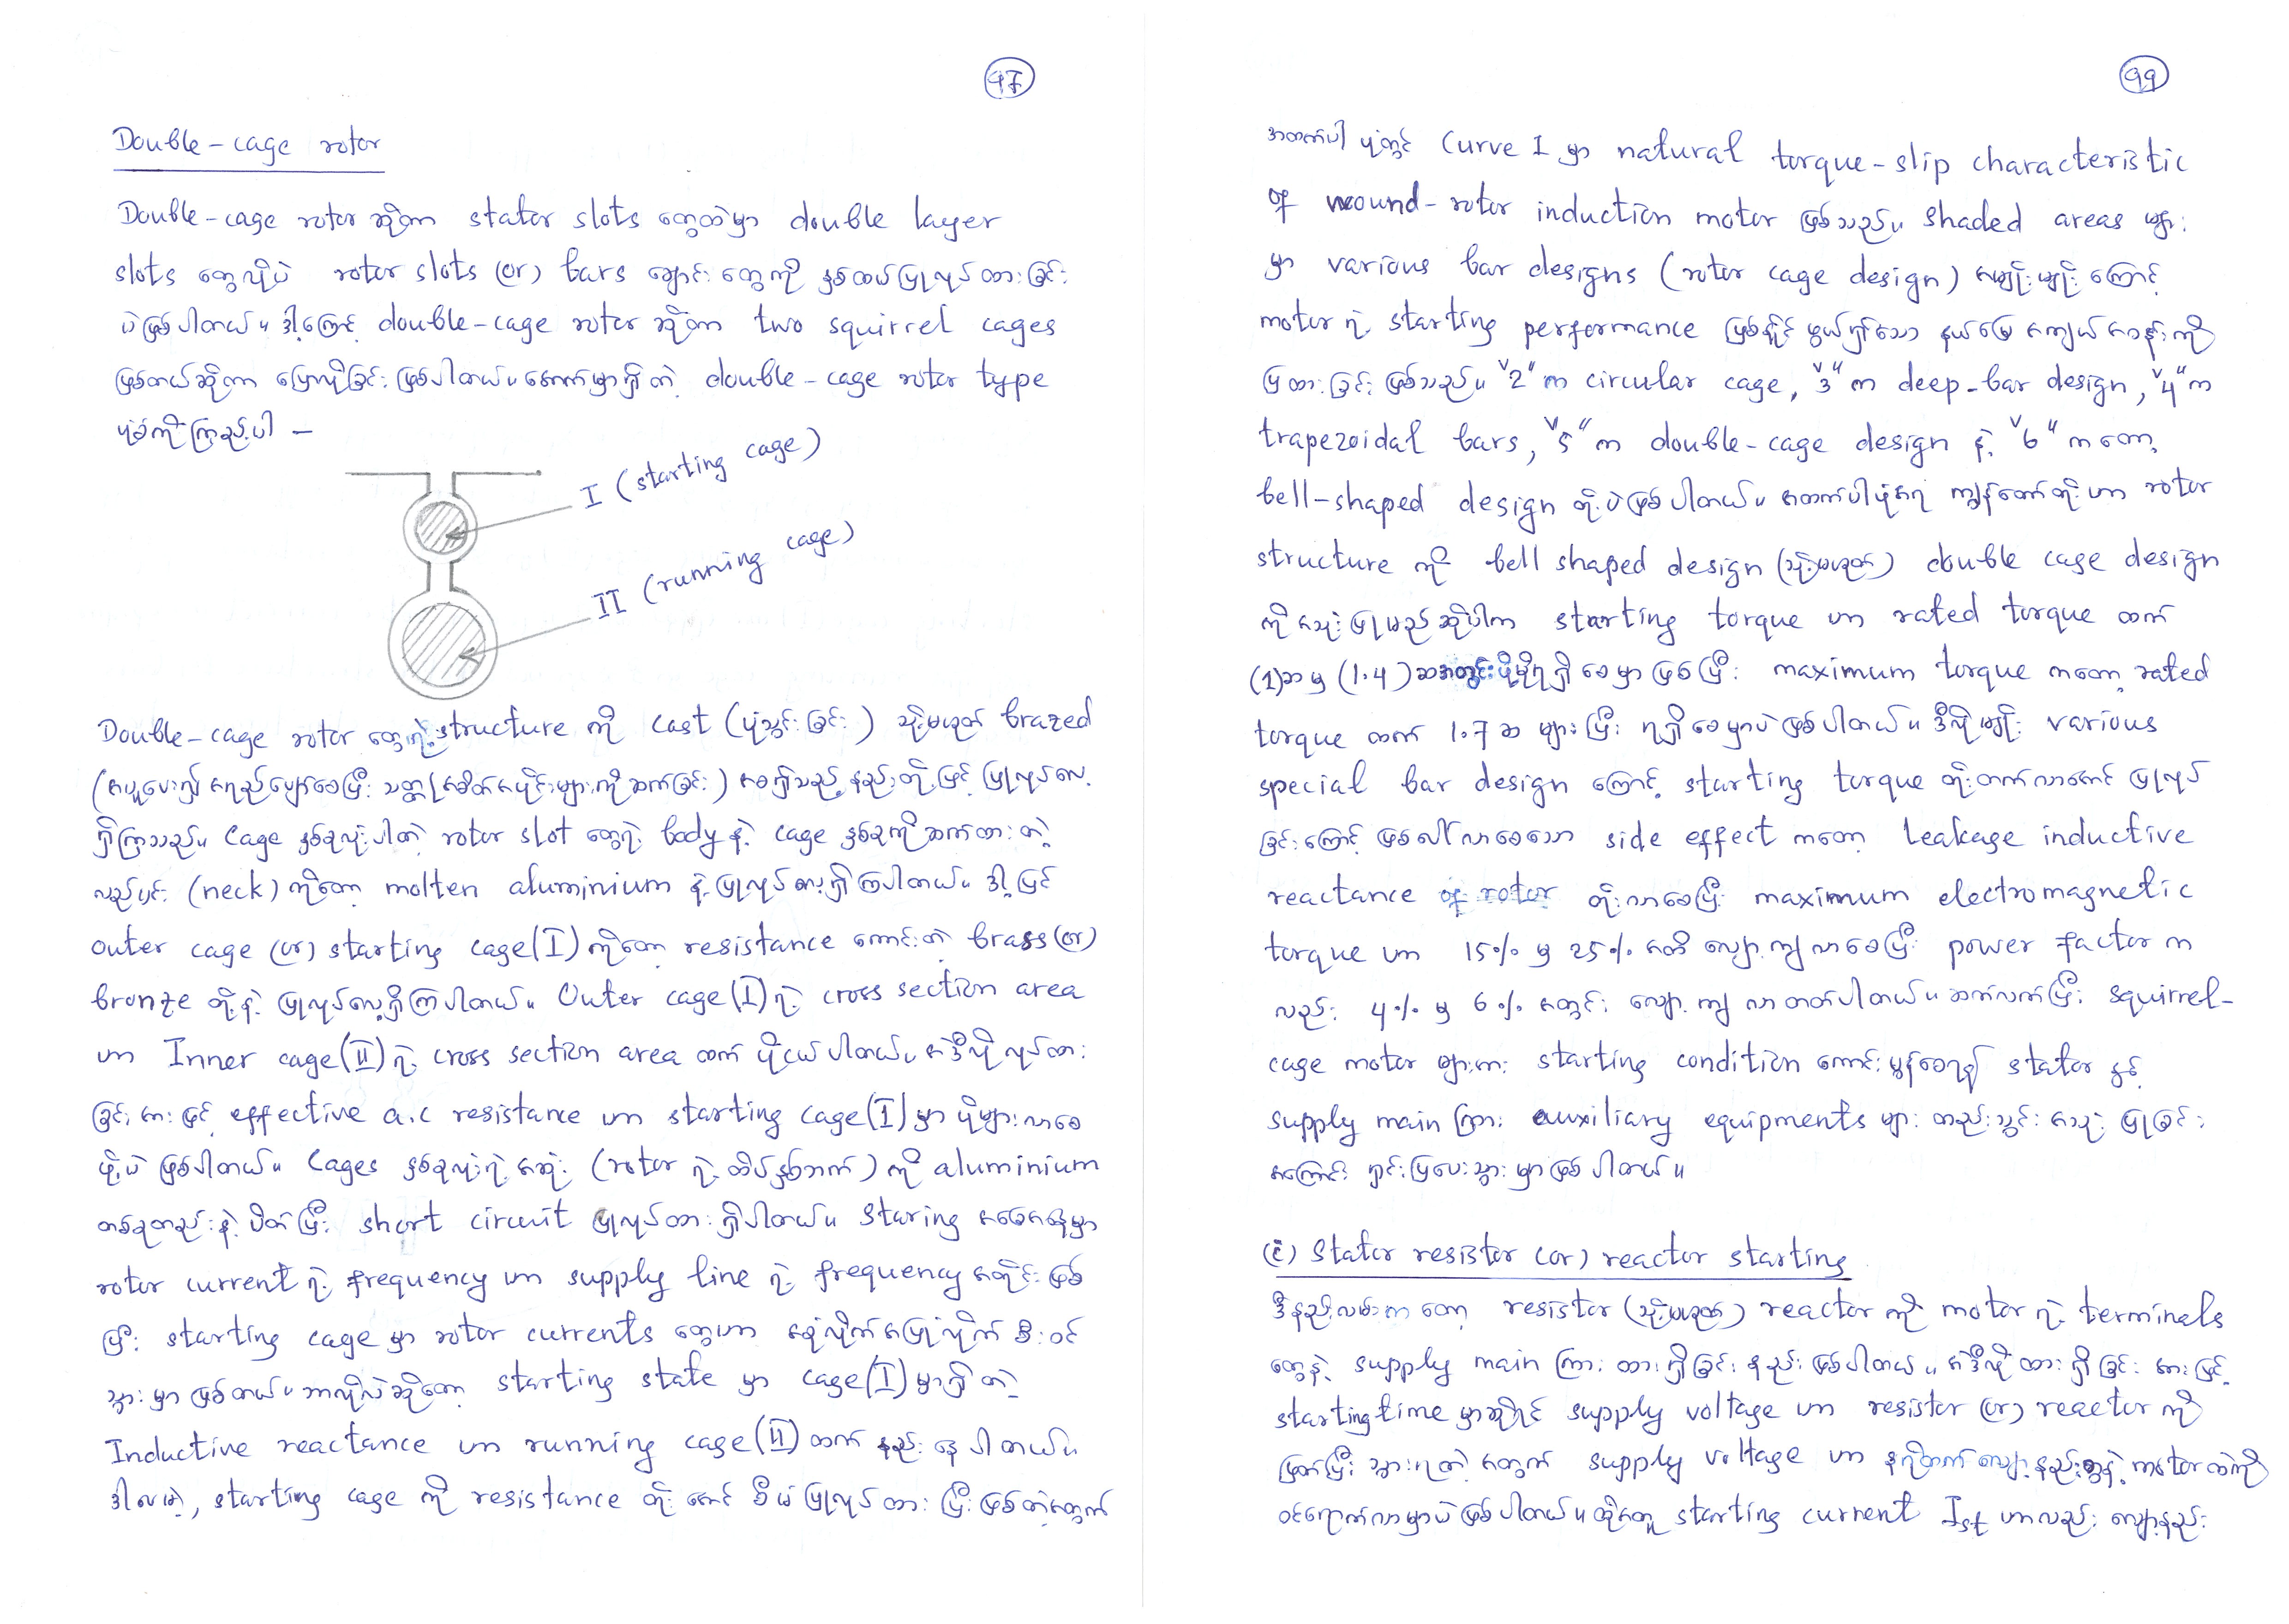 97
Double-cage rotor
Double-cage rotor ဆိုတာ stator slots တွေထဲမှာ double layer
slots တွေလိုပဲ rotor slots (or) bars ချောင်းတွေကို နှစ်ထပ်ပြုလုပ်ထားခြင်း
ပဲဖြစ်ပါတယ်။ ဒါ့ကြောင့် double-cage rotor ဆိုတာ two squirrel cages
ဖြစ်တယ်ဆိုတာ ပြောလိုခြင်းဖြစ်ပါတယ်။ အောက်မှာရှိတဲ့ double-cage rotor type
ပုံစံကိုကြည့်ပါ –
I (starting cage)
II (running cage)
Double-cage rotor တွေရဲ့ structure ကို cast (ပုံသွင်းခြင်း) သို့မဟုတ် brazed
(အပူပေး၍ အရည်ပျော်စေပြီး သတ္တုအစိတ်အပိုင်းများကိုဆက်ခြင်း) စသည့်နည်းတို့ဖြင့် ပြုလုပ်လေ့
ရှိကြသည်။ Cage နှစ်ခုလုံးပါတဲ့ rotor slot တွေရဲ့ body နဲ့ cage နှစ်ခုကိုဆက်ထားတဲ့
လည်ပင်း (neck) ကိုတော့ molten aluminium နဲ့ ပြုလုပ်ထားရှိကြပါတယ်။ ဒါ့ပြင်
outer cage (or) starting cage (I) ကိုတော့ resistance ကောင်းတဲ့ brass (or)
bronze တို့နဲ့ ပြုလုပ်လေ့ရှိကြပါတယ်။ Outer cage (I) ရဲ့ cross section area
ဟာ Inner cage (II) ရဲ့ cross section area ထက် ပိုငယ်ပါတယ်။ အဲဒီလိုလုပ်ထား
ခြင်းအားဖြင့် effective a.c resistance ဟာ starting cage (I) မှာ ပိုများလာစေ
ဖို့ပဲ ဖြစ်ပါတယ်။ Cages နှစ်ခုလုံးရဲ့အဆုံး (rotor ရဲ့ ထိပ်နှစ်ဘက်) ကို aluminium
တစ်ခုတည်းနဲ့ ပိတ်ပြီး short circuit ပြုလုပ်ထားရှိပါတယ်။ Staring အခြေအနေမှာ
rotor current ရဲ့ frequency ဟာ supply line ရဲ့ frequency အတိုင်းဖြစ်
ပြီး starting cage မှာ rotor currents တွေဟာ အုံလိုက်အပြုံလိုက် စီးဝင်
သွားမှာ ဖြစ်တယ်။ ဘာလို့လဲဆိုတော့ starting state မှာ cage (I) မှာရှိတဲ့
Inductive reactance ဟာ running cage (II) ထက် နည်းနေပါတယ်။
ဒါပေမဲ့, starting cage ကို resistance တိုးအောင် စီမံပြုလုပ်ထားပြီးဖြစ်တဲ့အတွက်
99
အထက်ပါ ပုံတွင် Curve I မှာ natural torque-slip characteristic
of wound-rotor induction motor ဖြစ်သည်။ Shaded areas များ
မှာ various bar designs (rotor cage design) အမျိုးမျိုးကြောင့်
motor ရဲ့ starting performance ဖြစ်နိုင်ဖွယ်ရှိသော နယ်မြေအကျယ်အဝန်းကို
ပြထားခြင်းဖြစ်သည်။ "2" က circular cage, "3" က deep-bar design, "4" က
trapezoidal bars, "5" က double-cage design နဲ့ "6" ကတော့
bell-shaped design တို့ပဲဖြစ်ပါတယ်။ အထက်ပါပုံအရ ကျွန်တော်တို့ဟာ rotor
structure ကို bell shaped design (သို့မဟုတ်) double cage design
ကိုအသုံးပြုမည်ဆိုပါက starting torque ဟာ rated torque ထက်
(1)ဆ မှ (1.4)ဆအတွင်းပိုမိုရရှိစေမှာဖြစ်ပြီး maximum torque ကတော့ rated
torque ထက် 1.7 ဆ များပြီး ရရှိစေမှာပဲဖြစ်ပါတယ်။ ဒီလိုမျိုး various
special bar design ကြောင့် starting torque တိုးတက်လာအောင် ပြုလုပ်
ခြင်းကြောင့် ဖြစ်ပေါ်လာစေသော side effect ကတော့ leakage inductive
reactance of rotor တိုးလာစေပြီး maximum electromagnetic
torque ဟာ 15% မှ 25% အထိ လျော့ကျလာစေပြီး power factor က
လည်း 4% မှ 6% အတွင်း လျော့ကျလာတတ်ပါတယ်။ ဆက်လက်ပြီး squirrel-
cage motor များအား starting condition ကောင်းမွန်စေရန် stator နှင့်
supply main ကြား auxiliary equipments များ တည်းသွင်းအသုံးပြုခြင်း
အကြောင်း ရှင်းပြပေးသွားမှာဖြစ်ပါတယ်။
(i) Stator resistor (or) reactor starting
ဒီနည်းလမ်းကတော့ resistor (သို့မဟုတ်) reactor ကို motor ရဲ့ terminals
တွေနဲ့ supply main ကြား ထားရှိခြင်းနည်းဖြစ်ပါတယ်။ အဲဒီလိုထားရှိခြင်းအားဖြင့်
starting time မှာဆိုရင် supply voltage ဟာ resistor (or) reactor ကို
ဖြတ်ပြီးသွားရတဲ့အတွက် supply voltage ဟာ နဂိုထက်လျော့နည်းစွာနဲ့ motor ထဲကို
ဝင်ရောက်လာမှာပဲဖြစ်ပါတယ်။ ထို့အတူ starting current Ist ဟာလည်း လျော့နည်း